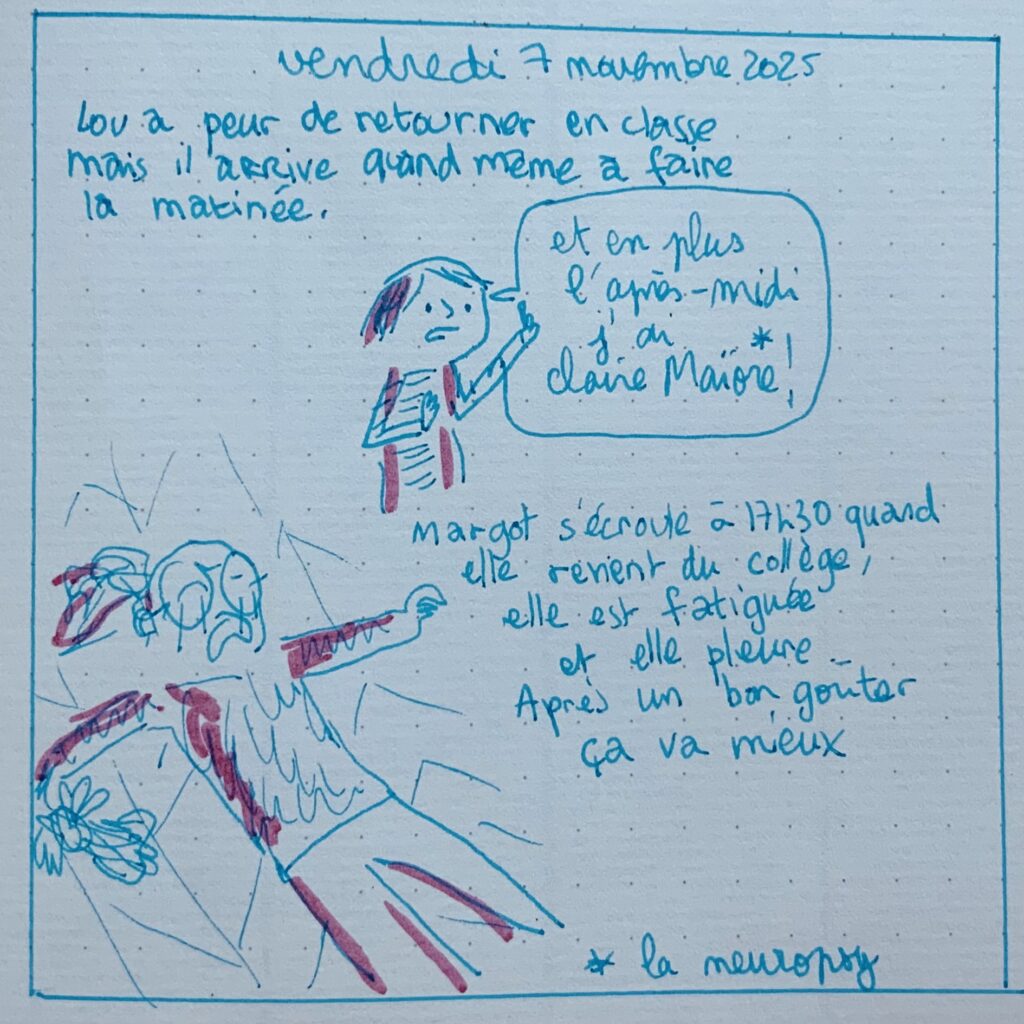 vendredi 7 novembre 2025
Lou a peur de retourner en classe
mais il arrive quand même à faire
la matinée.
et en plus
l'après-midi
j'ai *
Claire Maïore !
Margot s'écroule à 17h30 quand
elle revient du collège,
elle est fatiguée
et elle pleure
Après un bon goûter
ça va mieux
* la neuropsy